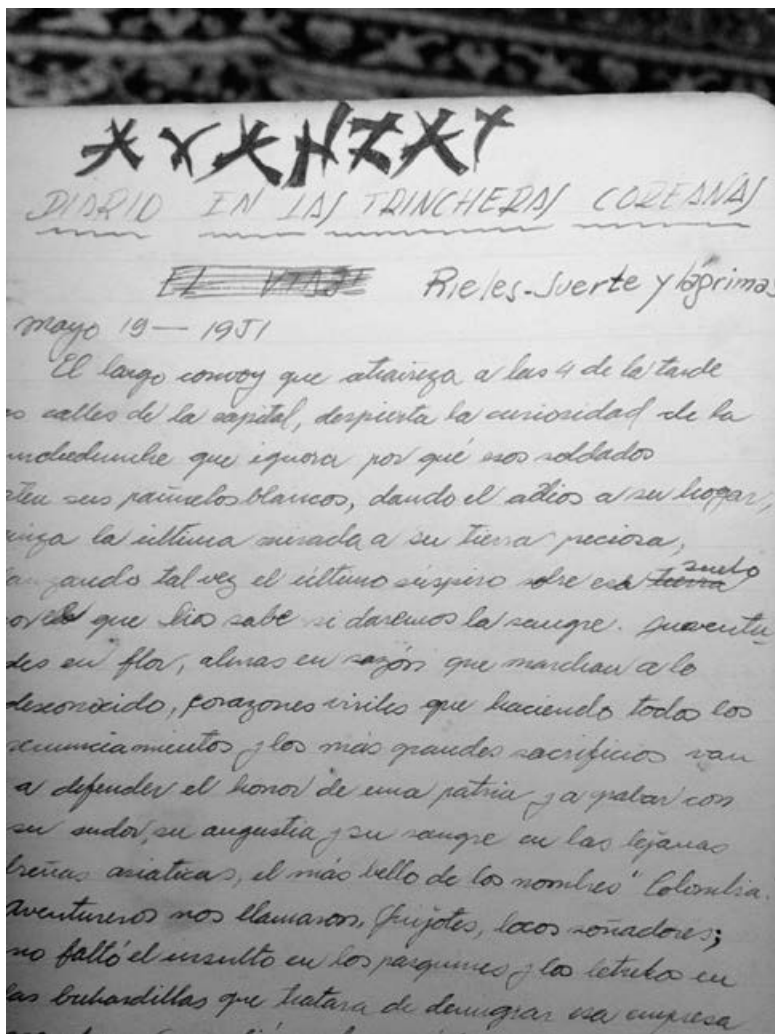 AVANZAR
DIARIO EN LAS TRINCHERAS COREANAS
EL VIAJE Rieles-Suerte y lágrimas
mayo 19 — 1951
El largo convoy que atraviesa a las 4 de la tarde
s calles de la capital, despierta la curiosidad de la
muchedumbre que ignora por qué esos soldados
ten sus pañuelos blancos, dando el adios a su hogar,
la última mirada a su tierra preciosa,
anzando tal vez el último suspiro sobre ese tierra suelo
que Dios sabe si daremos la sangre. Juventu-
des en flor, almas en sazón que marchan a lo
desconocido, corazones viriles que haciendo todos los
renunciamientos y los más grandes sacrificios van
a defender el honor de una patria y a grabar con
su sudor, su angustia y su sangre en las lejanas
breñas asiaticas, el más bello de los nombres "Colombia.
Aventureros nos llamaron, Quijotes, locos soñadores;
no faltó el insulto en los pasquines y los letreros en
las buhardillas que tratara de denigrar esa empresa